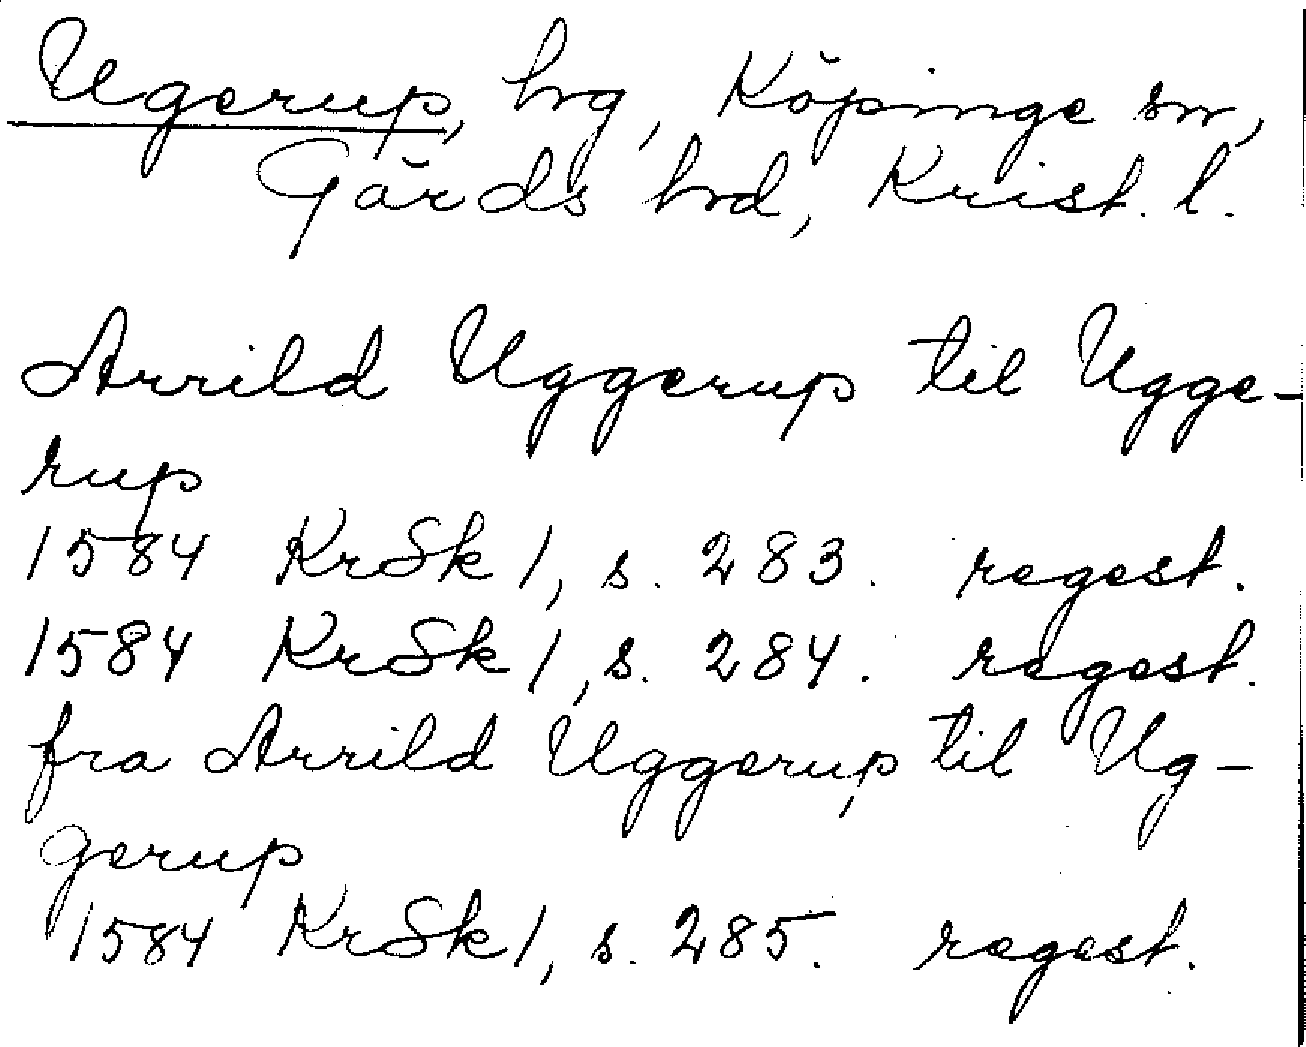 Ugerup, hrg, Köpinge sn,
Gärds hrd, Krist. l.
Arrild Uggerup til Ugge-
rup
1584 KrSk 1, s. 283. regest.
1584 KrSk 1, s. 284. regest.
fra Arrild Uggerup til Ug-
gerup
1584 KrSk 1, s. 285. regest.